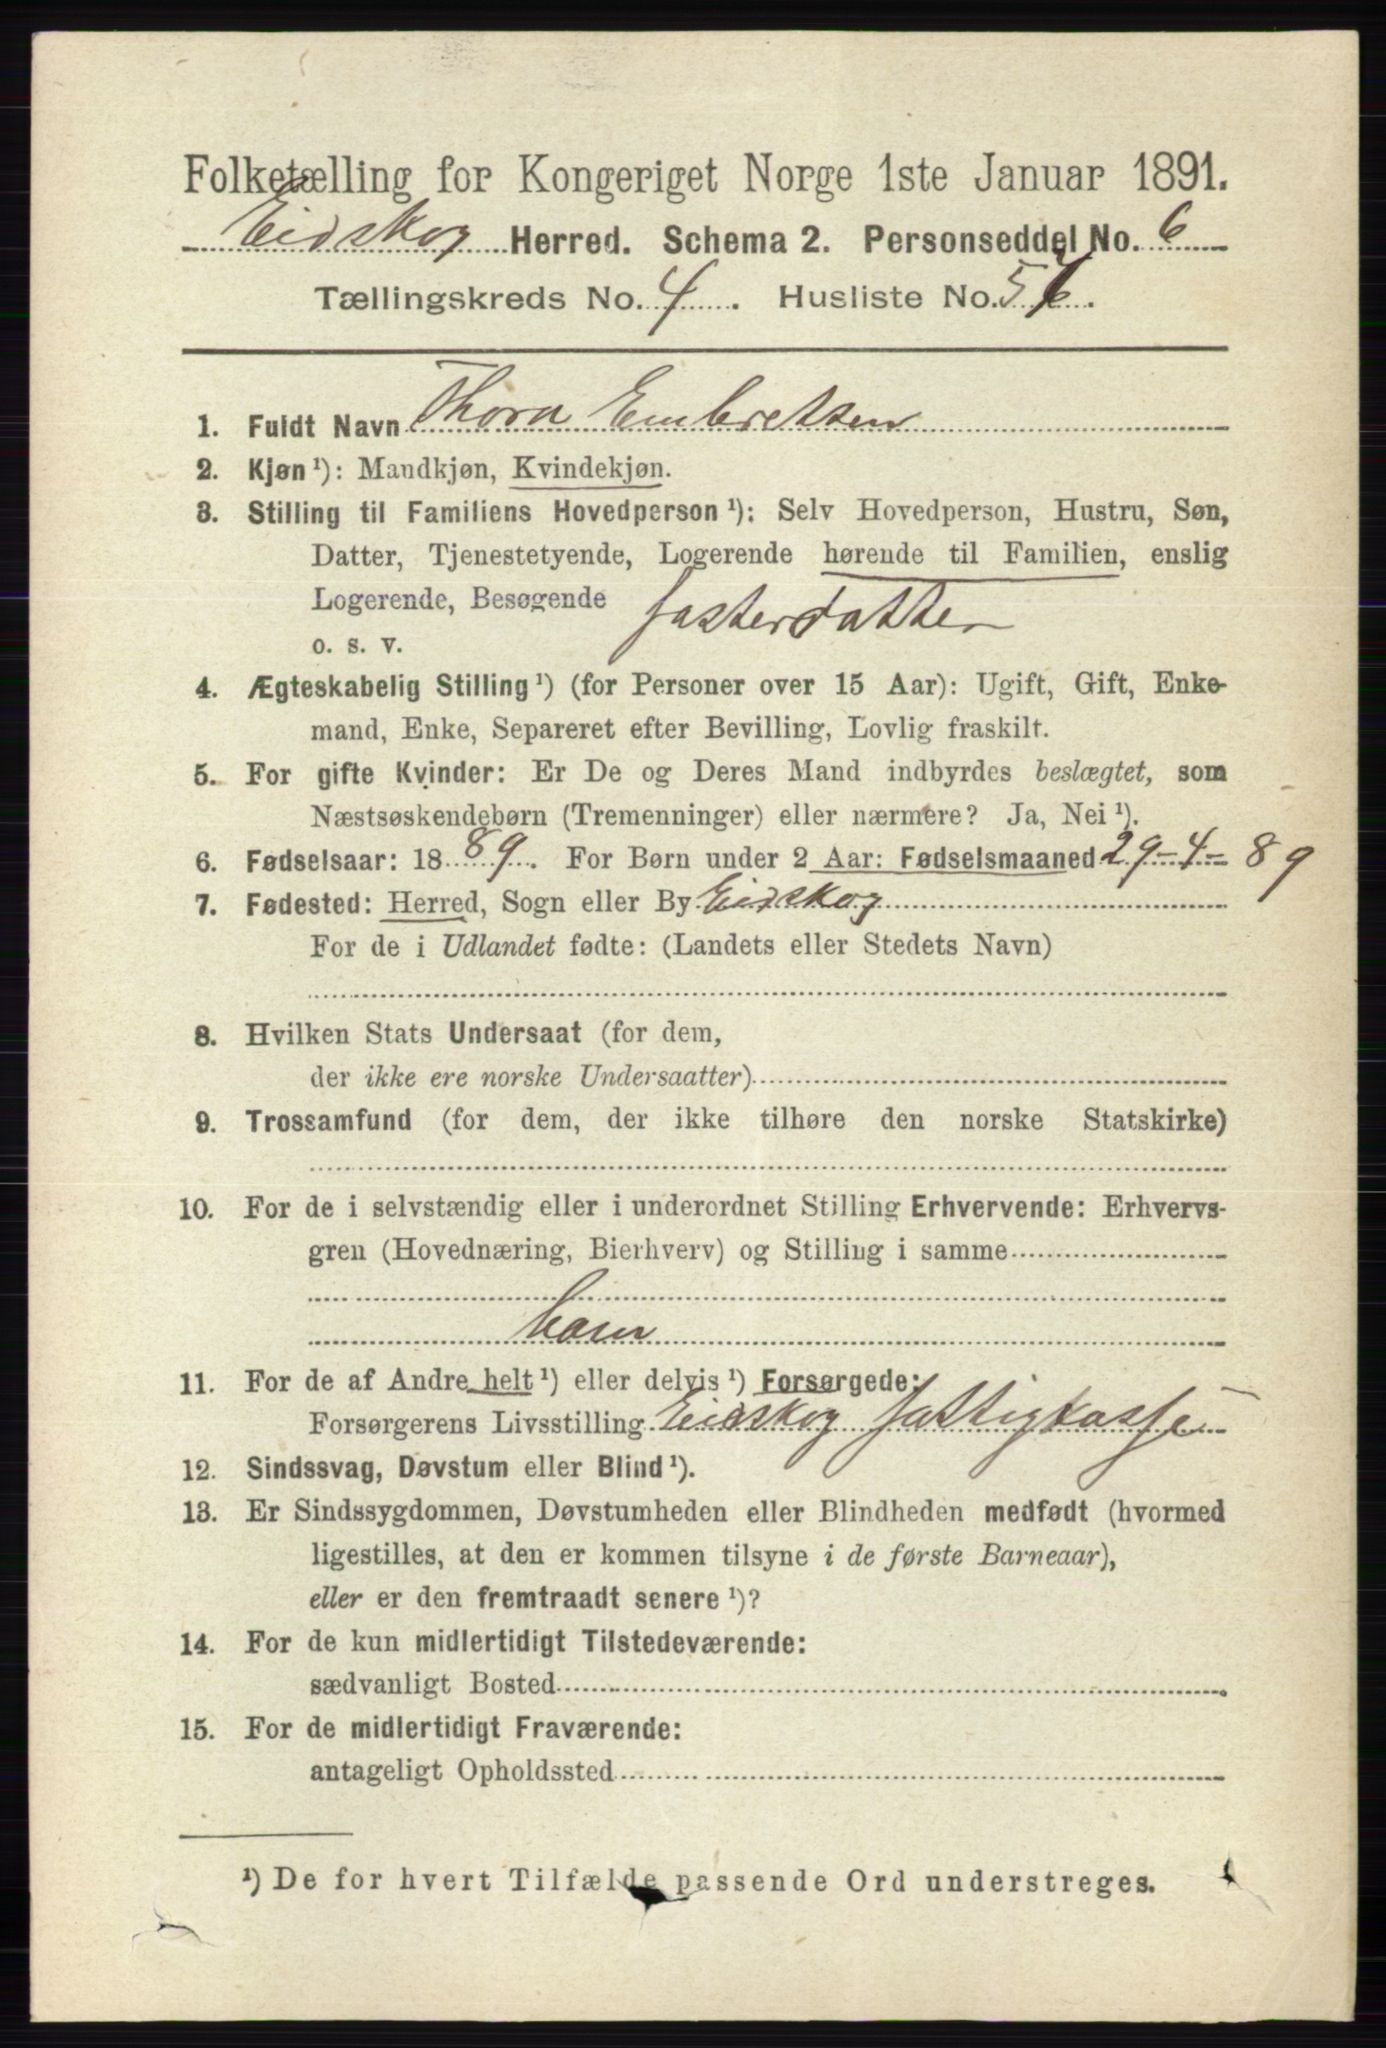 Folketælling for Kongeriget Norge 1ste Januar 1891.
Eidskog Herred. Schema 2. Personseddel No. 6
Tællingskreds No. 4. Husliste No. 5
1. Fuldt Navn Thora Embretsen
2. Kjøn ¹): Mandkjøn, Kvindekjøn.
3. Stilling til Familiens Hovedperson ¹): Selv Hovedperson, Hustru, Søn,
Datter, Tjenestetyende, Logerende hørende til Familien, enslig
Logerende, Besøgende fosterdatter
o. s. v.
4. Ægteskabelig Stilling ¹) (for Personer over 15 Aar): Ugift, Gift, Enke-
mand, Enke, Separeret efter Bevilling, Lovlig fraskilt.
5. For gifte Kvinder: Er De og Deres Mand indbyrdes beslægtet, som
Næstsøskendebørn (Tremenninger) eller nærmere? Ja, Nei ¹).
6. Fødselsaar: 1889. For Børn under 2 Aar: Fødselsmaaned 29-4-89
7. Fødested: Herred, Sogn eller By Eidskog
For de i Udlandet fødte: (Landets eller Stedets Navn)
8. Hvilken Stats Undersaat (for dem,
der ikke ere norske Undersaatter)
9. Trossamfund (for dem, der ikke tilhøre den norske Statskirke)
10. For de i selvstændig eller i underordnet Stilling Erhvervende: Erhvervs-
gren (Hovednæring, Bierhverv) og Stilling i samme
barn
11. For de af Andre helt ¹) eller delvis ¹) Forsørgede:
Forsørgerens Livsstilling Eidskog fattigkasse
12. Sindssvag, Døvstum eller Blind ¹).
13. Er Sindssygdommen, Døvstumheden eller Blindheden medfødt (hvormed
ligestilles, at den er kommen tilsyne i de første Barneaar),
eller er den fremtraadt senere ¹)?
14. For de kun midlertidigt Tilstedeværende:
sædvanligt Bosted
15. For de midlertidigt Fraværende:
antageligt Opholdssted
¹) De for hvert Tilfælde passende Ord understreges.